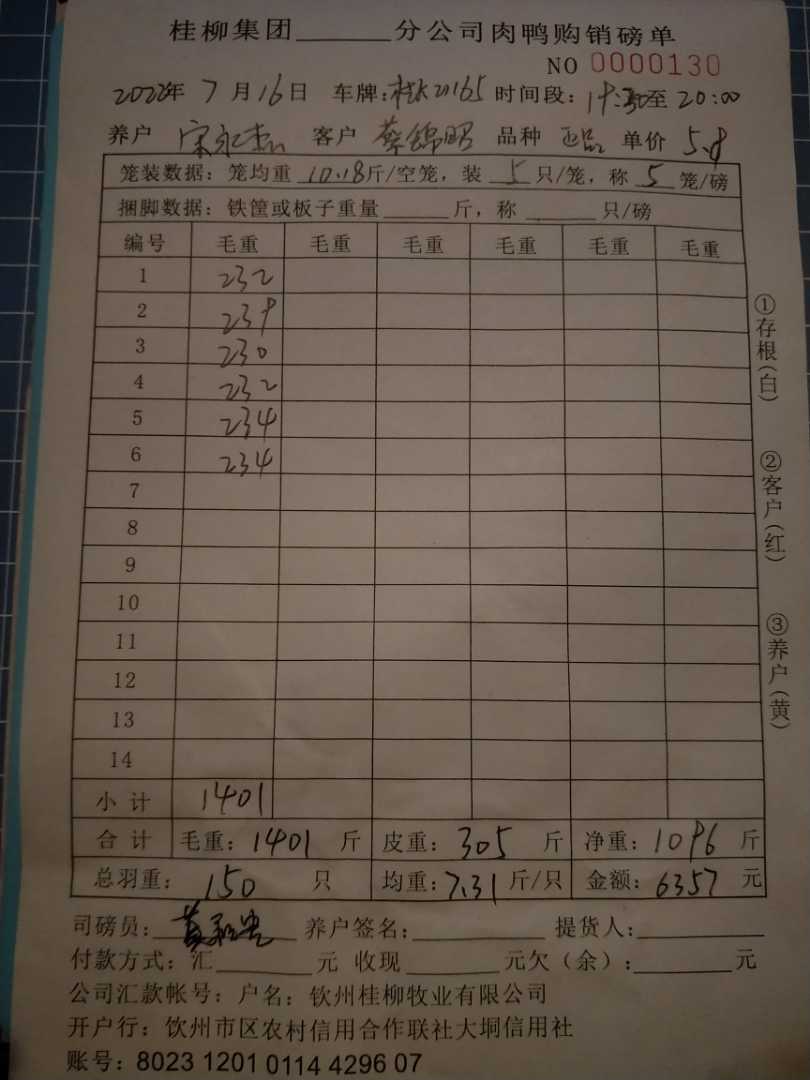 桂柳集团______分公司肉鸭购销磅单
NO 0000130
2022年 7月16日 车牌:桂K21165 时间段:19:30至20:00
养户 宋永 客户 蔡锦昭 品种 正品 单价 5.8
笼装数据:笼均重 10.18斤/空笼,装 5 只/笼,称 5 笼/磅
捆脚数据:铁筐或板子重量______斤,称______只/磅
编号 毛重 毛重 毛重 毛重 毛重 毛重
1 232
2 239
3 230
4 232
5 234
6 234
7
8
9
10
11
12
13
14
小计 1401
合计 毛重:1401 斤 皮重:305 斤 净重:1096 斤
总羽重:150 只 均重:7.31 斤/只 金额:6357 元
司磅员:黄 养户签名:______ 提货人:______
付款方式:汇______元 收现______元欠(余):______元
公司汇款帐号:户名:钦州桂柳牧业有限公司
开户行:饮州市区农村信用合作联社大垌信用社
账号:8023 1201 0114 4296 07
①存根(白)
②客户(红)
③养户(黄)